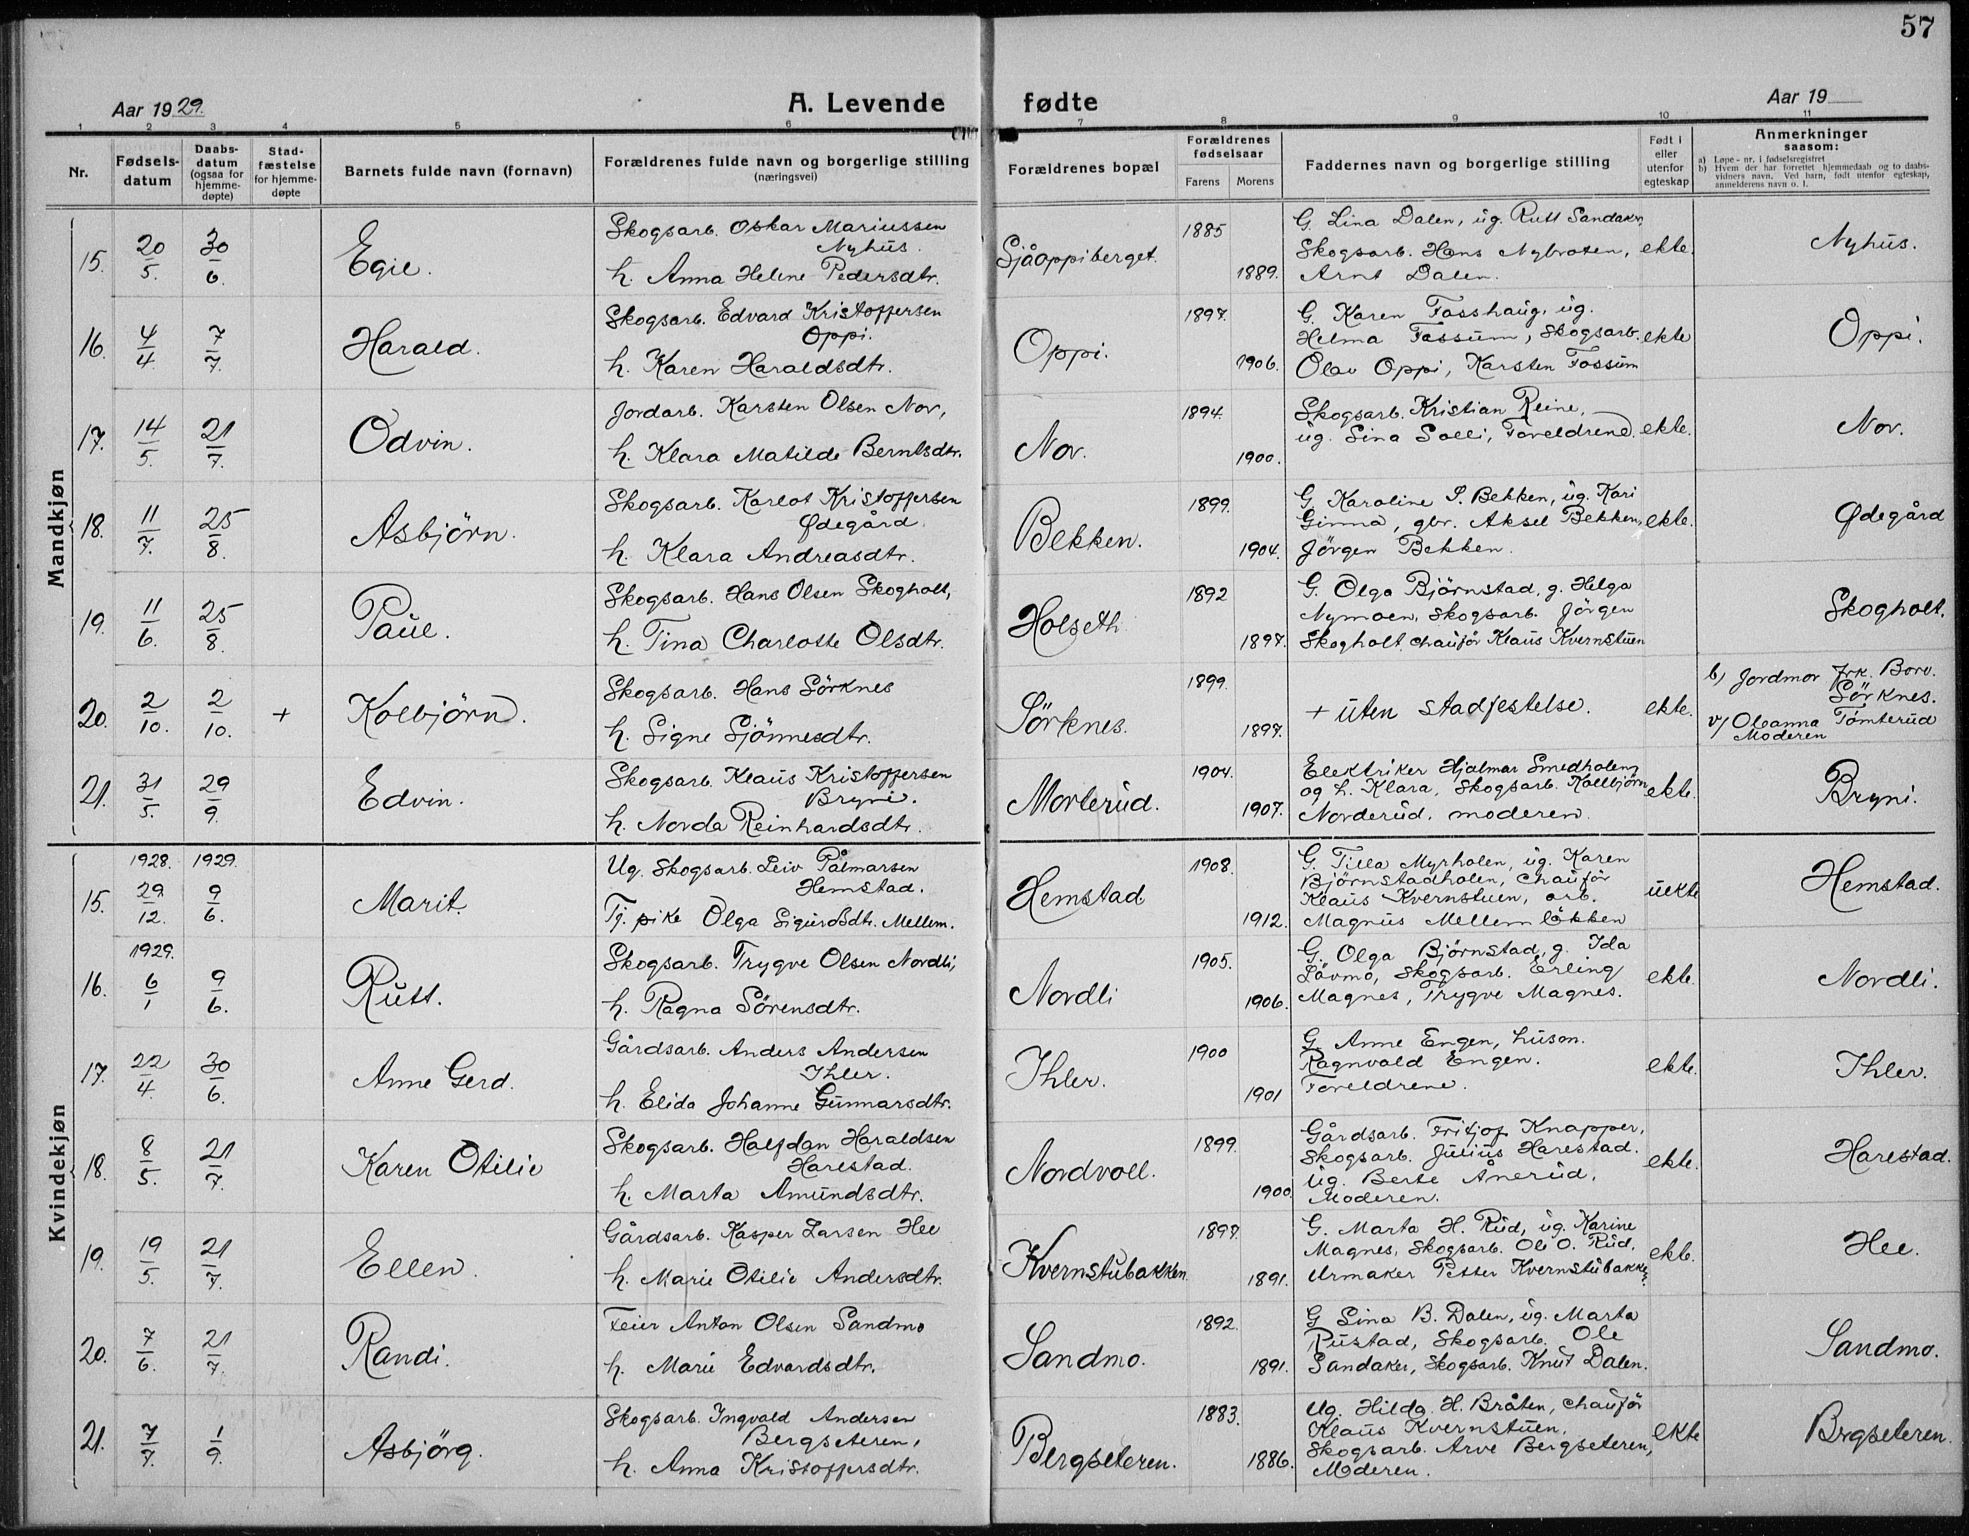 57
Aar 1929. A. Levende fødte Aar 19
1 2 3 4 5 6 7 8 9 10 11
Nr. Fødselsdatum Daabsdatum (ogsaa for hjemmedøpte) Stadfæstelse for hjemmedøpte Barnets fulde navn (fornavn) Forældrenes fulde navn og borgerlige stilling (næringsvei) Forældrenes bopæl Forældrenes fødselsaar Farens Morens Faddernes navn og borgerlige stilling Født i eller utenfor egteskap Anmerkninger saasom:
a) Løpe-nr. i fødselsregistret
b) Hvem der har forrettet hjemmedaab og to daabsvidners navn. Ved barn, født utenfor egteskap, anmelderens navn o. l.
Mandkjøn
15. 20/5. 30/6. Egil. Skogsarb. Oskar Mariussen Nyhus. h. Anna Helene Pedersdtr. Sjåoppiberget. 1885 1889. G. Lina Dalen, ug. Rutt Sandaker, Skogsarb. Hans Nybroten, Arnt Dalen. ekte. Nyhus.
16. 4/4 7/7. Harald. Skogsarb. Edvard Kristoffersen Oppi. h. Karen Haraldsdtr. Oppi. 1897. 1906. G. Karen Fosshaug, ug. Helma Fossum, Skogsarb. Olav Oppi, Karsten Fossum ekte Oppi.
17. 14/5. 21/7. Odvin. Jordarb. Karsten Olsen Nor, h. Klara Matilde Berntsdtr. Nor. 1894. 1900. Skogsarb. Kristian Reine, ug. Sina Solli, Foreldrene. ekte. Nor.
18. 11/7. 25/8. Asbjörn. Skogsarb. Karlot Kristoffersen Ødegård. h. Klara Andreasdtr. Bekken. 1899. 1904. G. Karoline S. Bekken, ug. Kari Ginna, gbr. Aksel Bekken, Jörgen Bekken. ekte. Ødegård
19. 11/6. 25/8. Paul. Skogsarb. Hans Olsen Skogholt, h. Tina Charlotte Olsdtr. Holseth 1892 1897. G. Olga Björnstad, g. Helga Nymoen, Skogsarb. Jörgen Skogholt, chauför Klaus Kvernstuen Skogholt.
20. 2/10. 2/10. + Kolbjörn. Skogsarb. Hans Sörknes h. Signe Sjönnesdtr. Sörknes. 1899. 1897. + uten stadfestelse. ekte. b) Jordmor frk. Borv. Sörknes. v/ Oleanna Tömterud Moderen
21. 31/5. 29/9. Edvin. Skogsarb. Klaus Kristoffersen Bryni. h. Norda Reinhardsdtr. Morterud. 1904. 1907. Elektriker Hjalmar Smedholen og h. Klara, Skogsarb. Kolbjörn Norderud. moderen. ekte. Bryni.
Kvindekjøn
15. 1928. 29/12. 1929. 9/6. Marit. Ug. Skogsarb. Leiv Pålmarsen Hemstad. Tj. pike Olga Sigurdsdtr. Mellem. Hemstad 1908. 1912. G. Tilla Myrholen, ug. Karen Björnstadholen, chauför Klaus Kvernstuen, arb. Magnus Mellem lökken uekte Hemstad.
16. 1929. 6/1 9/6. Rutt. Skogsarb. Trygve Olsen Nordli, h. Ragna Sörensdtr. Nordli 1905. 1906. G. Olga Björnstad, g. Ida Lövmo, Skogsarb. Erling Magnes, Trygve Magnes. ekte. Nordli.
17. 22/4. 30/6. Anne Gerd. Gårdsarb. Anders Andersen Ihler. h. Elida Johanne Gunnarsdtr. Ihler. 1900 1901 G. Anne Engen, husm. Ragnvald Engen. Foreldrene. ekte. Ihler.
18. 8/5. 21/7. Karen Otilie Skogsarb. Halfdan Haraldsen Harestad. h. Marta Amundsdtr. Nordvoll. 1899. 1900. Gårdsarb. Fritjof Knapper, Skogsarb. Julius Harestad. ug. Berte Ånerud, Moderen. ekte. Harestad.
19. 19/5. 21/7. Ellen. Gårdsarb. Kasper Larsen Hee h. Marie Otilie Andersdtr. Kvernstubakken. 1897. 1891. G. Marta H. Rud, ug. Karine Magnes, Skogsarb. Ole O. Rud, Urmaker Petter Kvernstubakken. ekte. Hee.
20. 7/6. 21/7. Randi. Feier Anton Olsen Sandmo h. Marie Edvardsdtr. Sandmo. 1892. 1891. G Lina B. Dalen, ug. Marta Rustad, Skogsarb. Ole Sandaker, Skogsarb. Knut Dalen. Sandmo.
21. 7/7. 1/9. Asbjörg. Skogsarb. Ingvald Andersen Bergseteren, h. Anna Kristoffersdtr. Bergseteren. 1883. 1886. Ug. Hilda H. Bråten, chauför Klaus Kvernstuen, Skogsarb. Arve Bergseteren, Moderen. ekte Brgseteren.